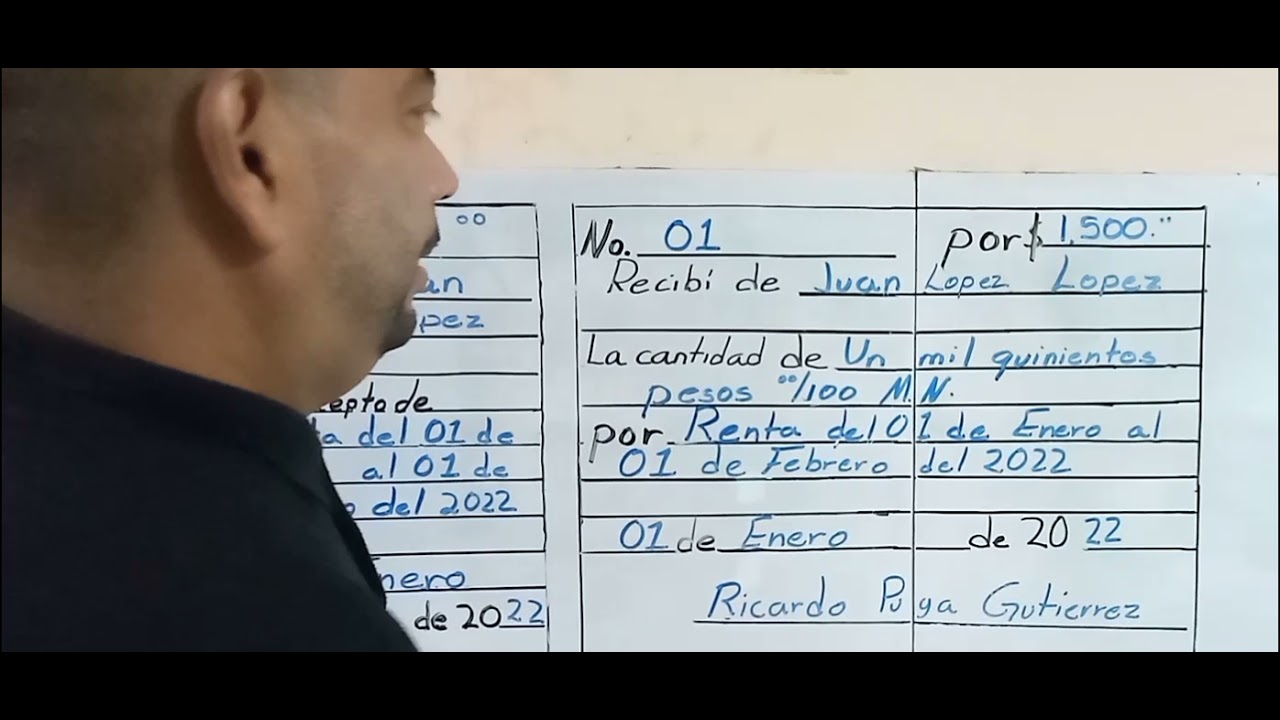 oo
an
pez
cepto de
a del 01 de
al 01 de
o del 2022
nero
de 2022
No. 01 por $ 1,500.00
Recibí de Juan Lopez Lopez
La cantidad de Un mil quinientos
pesos 00/100 M.N.
por Renta del 01 de Enero al
01 de Febrero del 2022
01 de Enero de 2022
Ricardo Puga Gutierrez